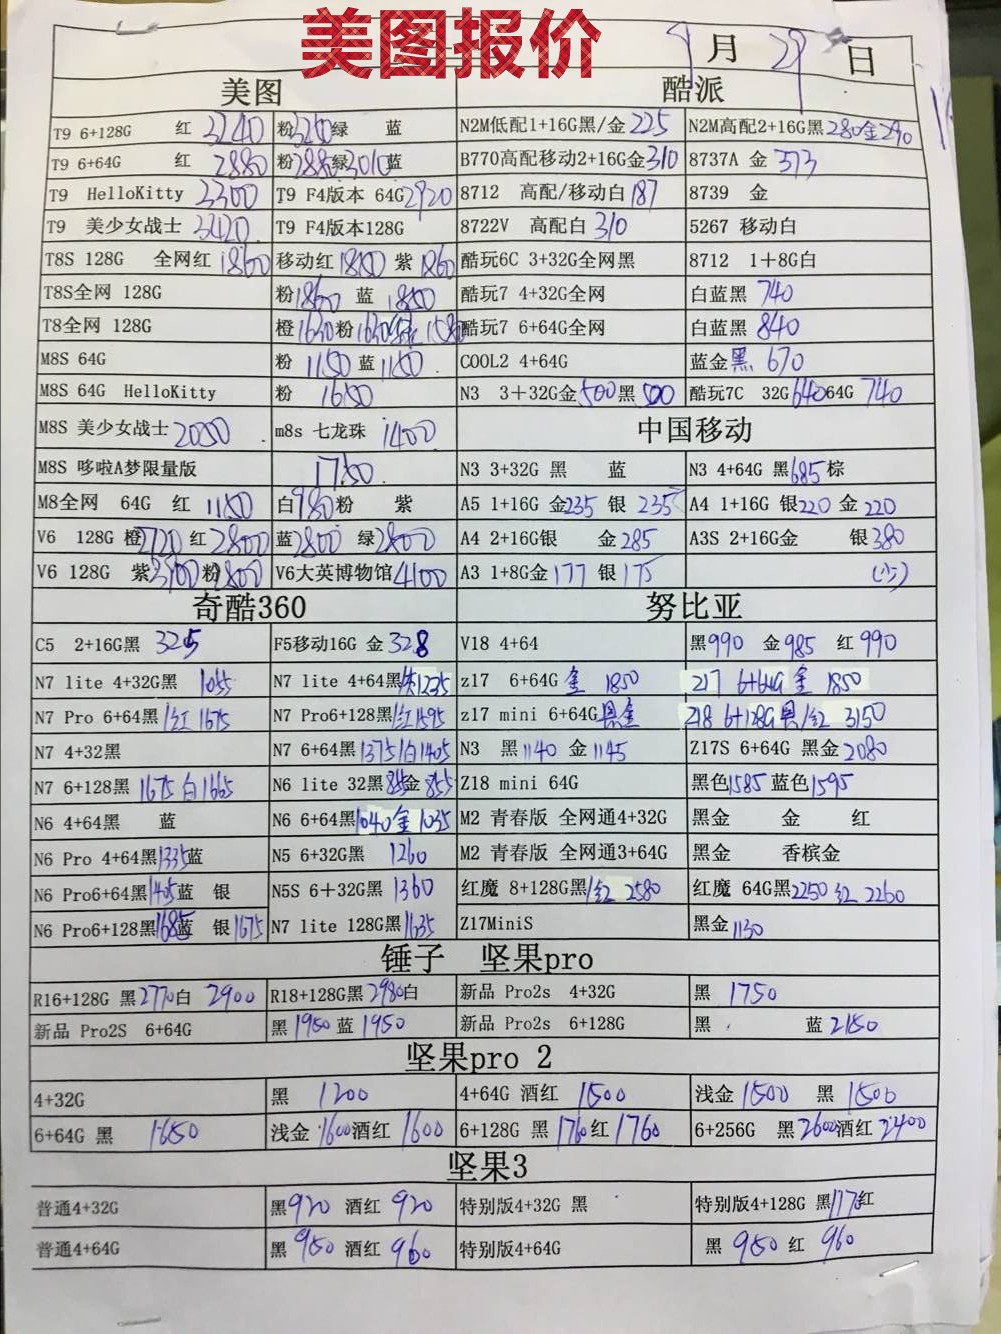 美图报价
9月29日
美图 酷派
T9 6+128G 红 3240 粉3210绿 蓝 N2M低配1+16G黑/金 225 N2M高配2+16G黑280金290
T9 6+64G 红 2880 粉2880绿3010蓝 B770高配移动2+16G金310 8737A 金 373
T9 HelloKitty 3300 T9 F4版本 64G2920 8712 高配/移动白187 8739 金
T9 美少女战士 3420 T9 F4版本128G 8722V 高配白 310 5267 移动白
T8S 128G 全网红 1860 移动红 紫 1860 酷玩6C 3+32G全网黑 8712 1+8G白
T8S全网 128G 粉1860 蓝 酷玩7 4+32G全网 白蓝黑 740
T8全网 128G 橙1630粉1630 1580 酷玩7 6+64G全网 白蓝黑 840
M8S 64G 粉 1150 蓝1150 COOL2 4+64G 蓝金黑 670
M8S 64G HelloKitty 粉 1650 N3 3+32G金500黑500 酷玩7C 32G64064G 740
M8S 美少女战士 2050 m8s 七龙珠 1400 中国移动
M8S 哆啦A梦限量版 1750 N3 3+32G 黑 蓝 N3 4+64G 黑685棕
M8全网 64G 红 1150 白980粉 紫 A5 1+16G 金235 银 235 A4 1+16G 银220 金 220
V6 128G 橙2720 红2800 蓝2800 绿2800 A4 2+16G银 金285 A3S 2+16G金 银380
V6 128G 紫 粉2800 V6大英博物馆4100 A3 1+8G金177 银175 (少)
奇酷360 努比亚
C5 2+16G黑 325 F5移动16G 金 328 V18 4+64 黑990 金985 红990
N7 lite 4+32G黑 1055 N7 lite 4+64黑 1235 z17 6+64G 金 1850 Z17 6+64G 金 1850
N7 Pro 6+64黑/红1675 N7 Pro6+128黑/红1595 z17 mini 6+64G黑金 Z18 6+128G黑/红 3150
N7 4+32黑 N7 6+64黑1375/白1405 N3 黑1140 金1145 Z17S 6+64G 黑金2080
N7 6+128黑 1675白1665 N6 lite 32黑845金 855 Z18 mini 64G 黑色1585 蓝色1595
N6 4+64黑 蓝 N6 6+64黑1040金1035 M2 青春版 全网通4+32G 黑金 金 红
N6 Pro 4+64黑1335蓝 N5 6+32G黑 1260 M2 青春版 全网通3+64G 黑金 香槟金
N6 Pro6+64黑1405蓝 银 N5S 6+32G黑 1360 红魔 8+128G黑/红 2580 红魔 64G黑2250红 2260
N6 Pro6+128黑1685蓝 银1675 N7 lite 128G黑1635 Z17MiniS 黑金1130
锤子 坚果pro
R16+128G 黑2770白 2900 R18+128G黑2980白 新品 Pro2s 4+32G 黑 1750
新品 Pro2S 6+64G 黑1950 蓝1950 新品 Pro2s 6+128G 黑 蓝 2150
坚果pro 2
4+32G 黑 1200 4+64G 酒红 1500 浅金 1500 黑 1500
6+64G 黑 1650 浅金1600酒红1600 6+128G 黑1760红1760 6+256G 黑2600酒红2400
坚果3
普通4+32G 黑920 酒红 920 特别版4+32G 黑 特别版4+128G 黑1170红
普通4+64G 黑 950 酒红 960 特别版4+64G 黑 950 红 960